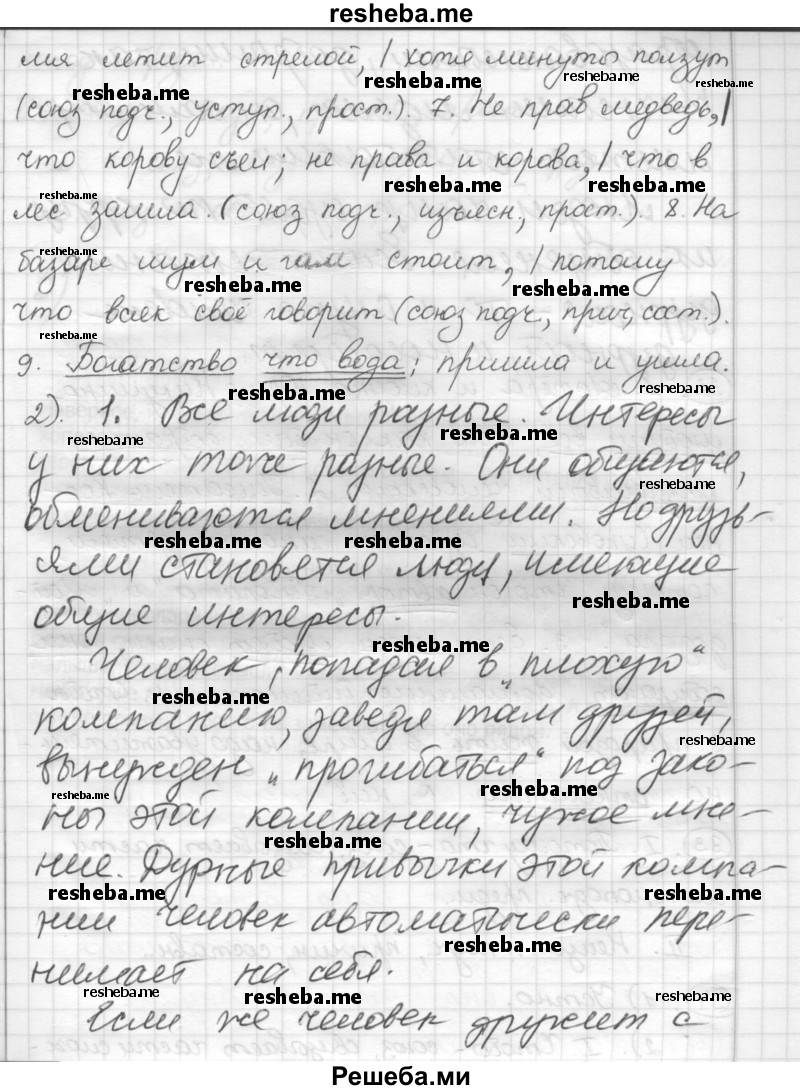 resheba.me
мя летит стрелой, / хотя минуты ползут
(союз подч., уступ., прост.). 7. Не прав медведь, /
что корову съел; не права и корова, / что в
лес зашла. (союз подч., изъясн., прост.). 8. На
базаре шум и гам стоит, / потому
что всяк своё говорит (союз подч., прич., сост.).
9. Богатство что вода; пришла и ушла.
2). 1. Все люди разные. Интересы
у них тоже разные. Они общаются,
обмениваются мнениями. Но друзь-
ями становятся люди, имеющие
общие интересы.
Человек, попадая в "плохую"
компанию, заведя там друзей,
вынужден "прогибаться" под зако-
ны этой компании, чужое мне-
ние. Дурные привычки этой компа-
нии человек автоматически пере-
нимает на себя.
Если же человек дружит с
Решеба.ми